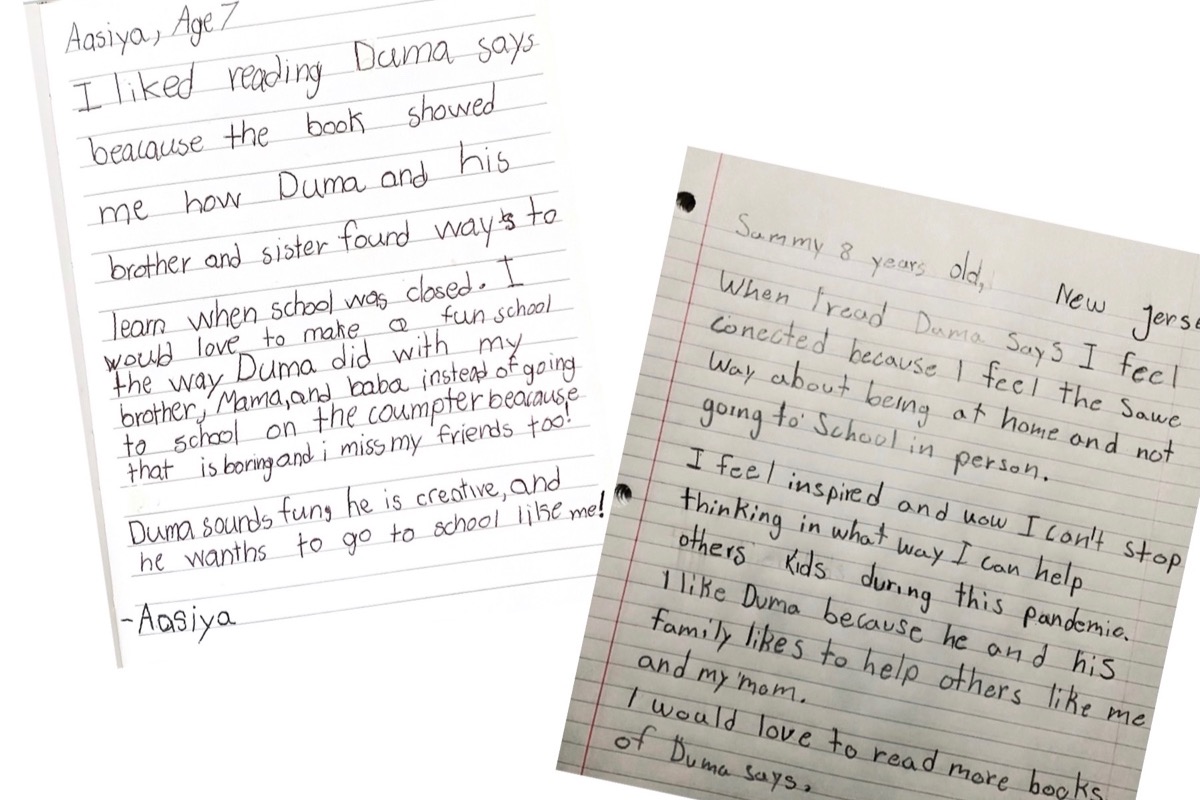 Aasiya, Age 7
I liked reading Duma says
beacause the book showed
me how Duma and his
brother and sister found ways to
learn when school was closed. I
would love to make a fun school
the way Duma did with my
brother, Mama, and baba instead of going
to school on the coumpter beacause
that is boring and i miss my friends too!
Duma sounds fun, he is creative, and
he wanths to go to school like me!
-Aasiya
Sammy 8 years old, New jerse
When I read Duma Says I feel
conected because I feel the Sawe
way about being at home and not
going to School in person.
I feel inspired and uow I can't stop
thinking in what way I can help
others Kids during this pandemic.
I like Duma because he and his
family likes to help others like me
and my mom.
I would love to read more books
of Duma says.